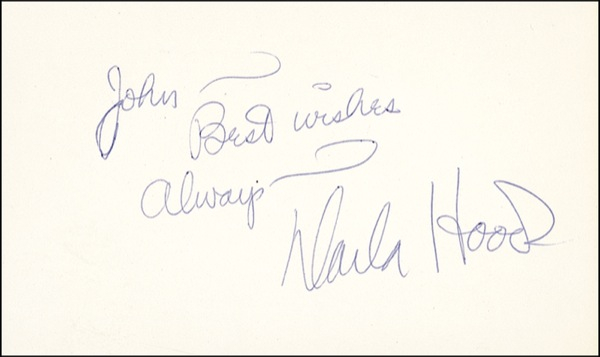 John
Best wishes
always
Darla Hood